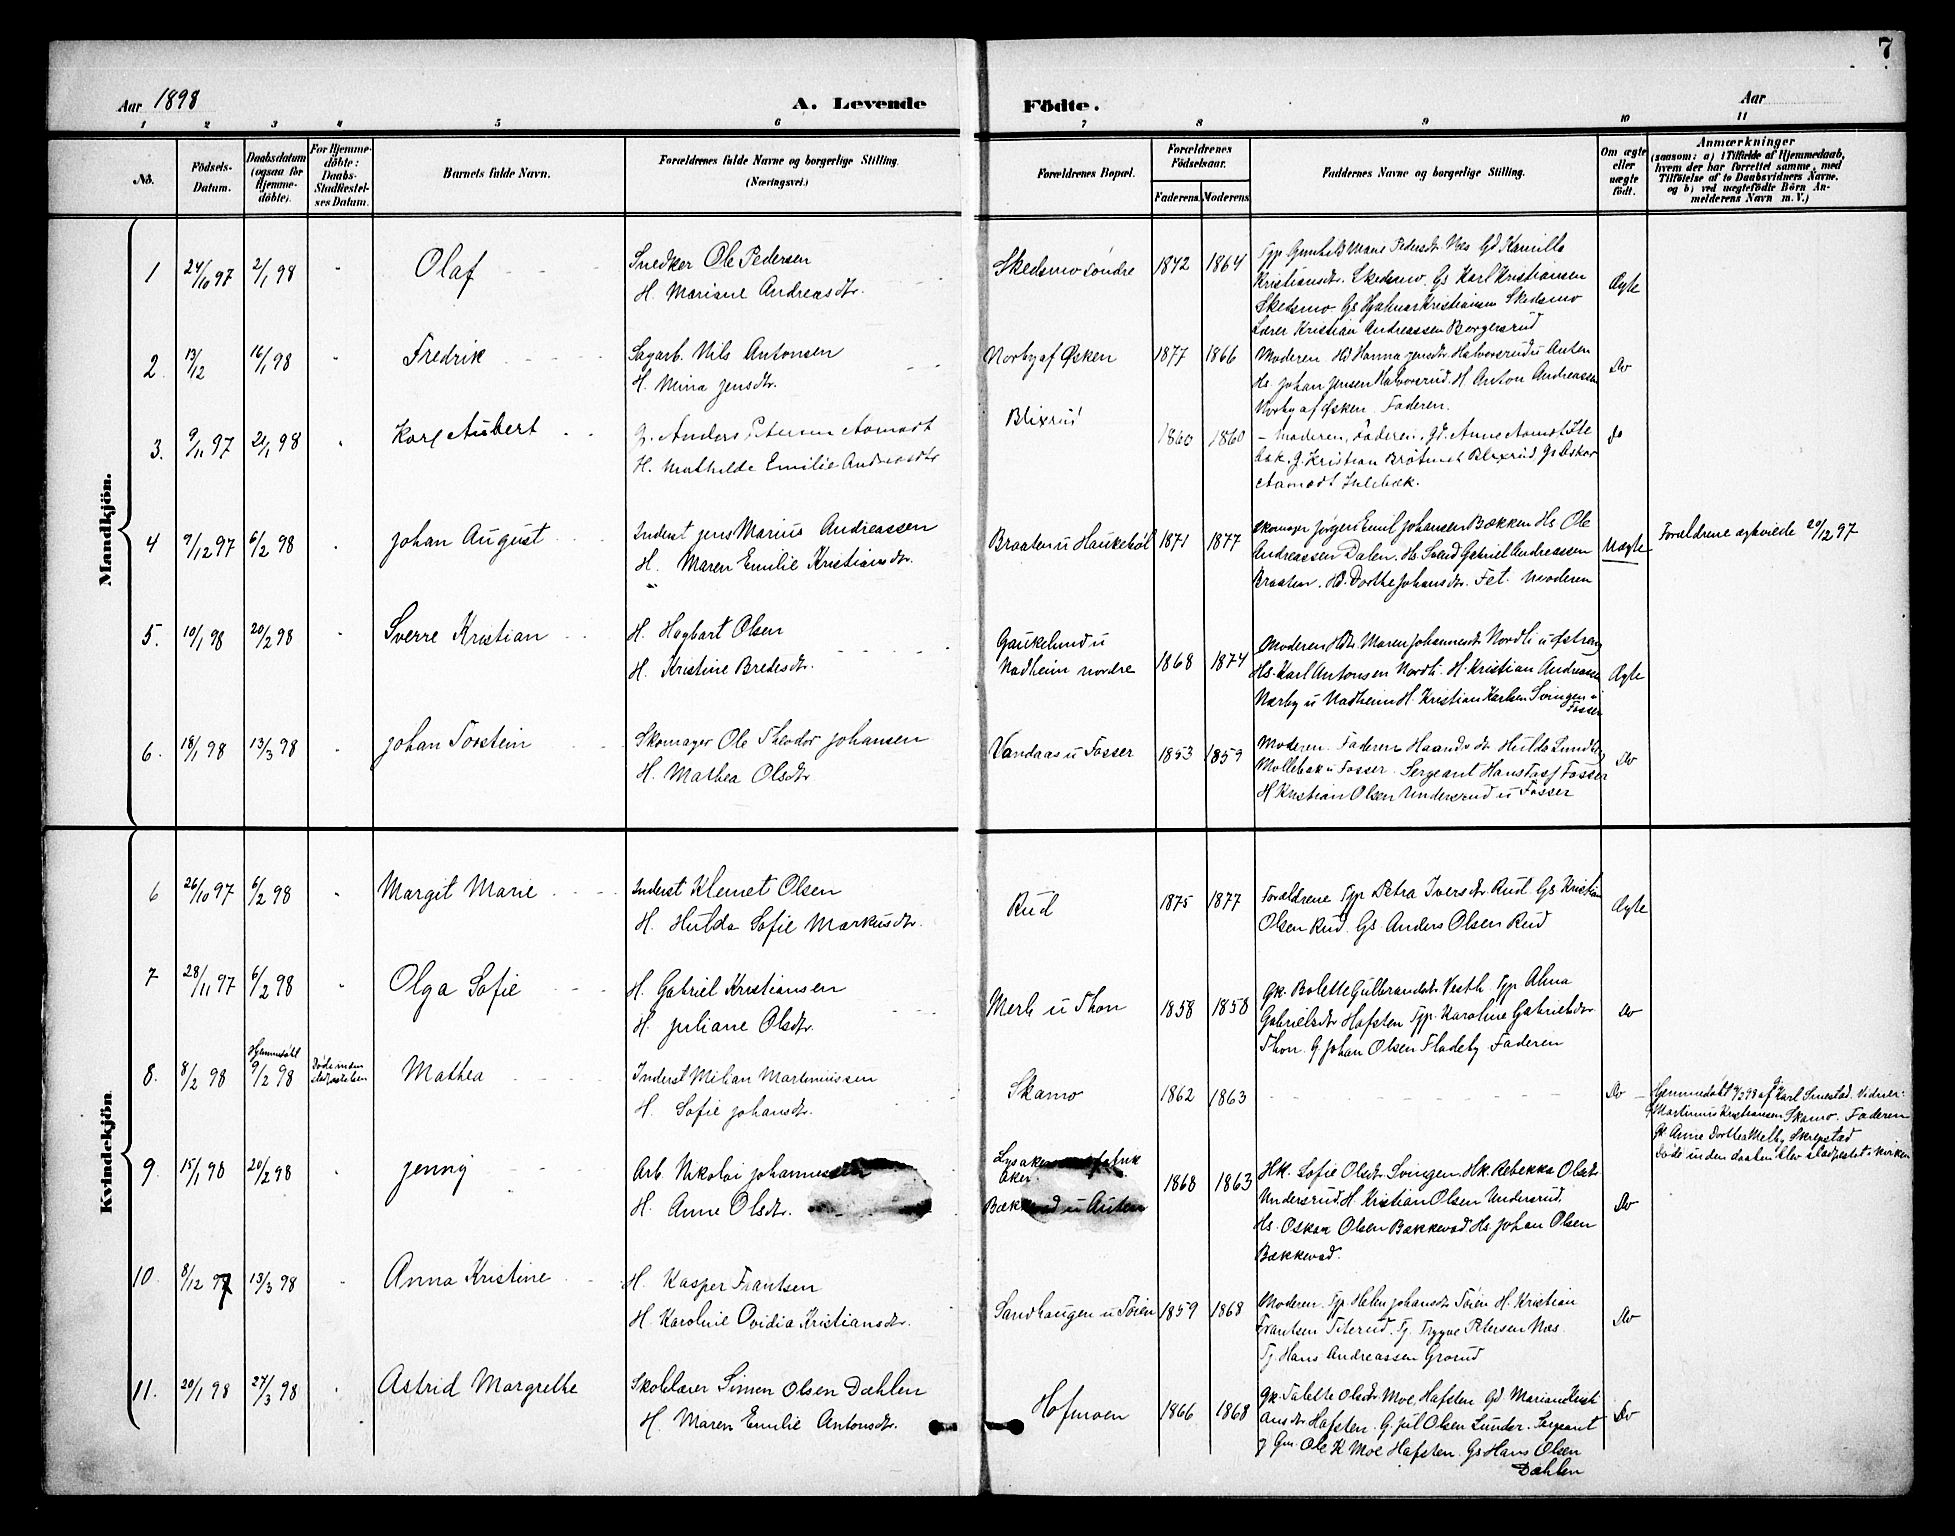 7
Aar 1898 A. Levende Födte. Aar
1 2 3 4 5 6 7 8 9 10 11
No. Födsels-Datum. Daabsdatum (ogsaa for Hjemme-döbte). For Hjemme-döbte: Daabs-Stadfæstel-ses Datum. Barnets fulde Navn. Forældrenes fulde Navne og borgerlige Stilling. (Næringsvei.) Forældrenes Bopæl. Forældrenes Födselsaar. Faderens Moderens Faddernes Navne og borgerlige Stilling. Om ægte eller uægte födt. Anmærkninger
(saasom: a) i Tilfælde af Hjemmedaab, hvem der har forrettet samme, med Tilföielse af to Daabsvidners Navne, og b) ved uægtefödte Börn An-melderens Navn m. V.)
Mandkjön.
1 24/10 97 2/1 98 " Olaf Snedker Ole Pedersen
H. Mariane Andreasdtr.
Skedsmo söndre 1842 1864
Kristiansdtr. Skedsmo. Gs Karl Kristiansen
Skedsmo. Gs Hjalmar Kristiansen Skedsmo
Lærer Kristian Andreassen Borgersrud
Ægte
2. 13/12 16/1 98 " Fredrik Sagarb. Nils Antonsen
H. Mina Jensdtr.
Norby af Øsken 1877 1866
Moderen Hd Hanna Jensdtr Halvorsrud u Auten
Hs. Johan Jensen Halvorsrud. H. Anton Andreassen
Norby af Øsken. Faderen.
Do
3. 9/11 97 21/1 98 " Karl Aubert G. Anders Petersen Aamodt
H. Mathilde Emilie Andreasdtr
Blixrud 1860 1860
- Moderen, Faderen, Gd. Anne Aamodt Jule
bæk. G. Kristian Bråtenet Blixrud Gs Oskar
Aamodt Julebæk.
do
4 9/12 97 6/2 98 " Johan August Inderst Jens Marius Andreassen
H. Maren Emilie Kristiansdtr.
Braaten u Haukebøl 1871 1877
Skomager Jørgen Emil Johansen Bækken Hs Ole
Andreassen Dalen. Hs. Svend Gabriel Andreassen
Braaten. Hd. Dorthe Johansdtr. Fet. Moderen
Uægte
Forældrene ægteviede 29/12 97
5. 10/1 98 20/2 98 " Sverre Kristian H. Hagbart Olsen
H. Kristine Bredesdtr.
Gaukelund u
Nadheim nordre 1868 1874
Moderen Hd. Maren Johannesdtr Nordli u Østreng
Hs. Karl Antonsen Nordli. H. Kristian Andreassen
Nærby u Nadheim H. Kristian Karlsen Svingen u
Fosser
Ægte
6. 18/1 98 13/3 98 " Johan Torstein Skomager Ole Theodor Johansen
H. Mathea Olsdtr
Vandaas u Fosser 1853 1859
Moderen. Faderen Haandv dtr Hulda Lundby
Møllebæk u Fosser. Sergeant Hans Fosser
H Kristian Olsen Undersrud u Fosser
Do
Kvindekjön.
6 26/10 97 6/2 98 " Margit Marie Inderst Klemet Olsen
H. Hulda Sofie Markusdtr.
Rud 1875 1877
Forældrene Typ Petra Iversdtr. Rud. Gs Kristian
Olsen Rud. Gs Anders Olsen Rud
Ægte
7 28/11 97 6/2 98 " Olga Sofie H. Gabriel Kristiansen
H. Juliane Olsdtr.
Merli u Thon 1858 1858
Gk. Bolette Gulbrandsdtr. Vestli Typ Alma
Gabrielsdtr Hofsten Typ. Karoline Gabrielsdtr
Thon. G Johan Olsen Fladeby. Faderen
Do
8. 8/2 98 Hjemmedøbt
9/2 98 Døde inden
stadfæstelsen Mathea Inderst Milian Martiniussen
H. Sofie Johansdtr.
Skamo 1862 1863
Do
Hjemmedøbt 9/2 98 af Karl Smestad. Vidner:
Martinius Kristiansen Skamo. Faderen
Gk Anne Dorthea Melby Skrepstad
Døde inden daaben blev stadfæstet i Kirken
9. 15/1 98 20/2 98 " Jenny Arb. Nikolai Johannessen
H. Anne Olsdtr.
Lysaker fabrik
Aker.
Bækkevad u Auten 1868 1863
Hk. Sofie Olsdtr Svingen. Hk. Rebekka Olsdtr
Undersrud. H. Kristian Olsen Undersrud.
Hs. Oskar Olsen Bækkevad. Hs. Johan Olsen
Bækkevad.
Do
10. 8/12 97 13/3 98 " Anna Kristine H. Kasper Frantsen
H. Karoline Ovidia Kristiansdtr.
Sandhaugen u Töien 1859 1868
Moderen. Typ Helen Johansdtr Töien H. Kristian
Frantsen Titerud. Tj. Trygve Petersen Næs.
Tj Hans Andreassen Grorud
Do
11. 20/1 98 27/3 98 " Astrid Margrethe Skolelærer Simen Olsen Dæhlen
H. Maren Emilie Antonsdtr.
Hofmoen 1866 1868
Gk. Talette Olsdtr. Moe Hafsten Gd Mariane Kristi
ansdtr Hafsten. G. Jul Olsen Lunder. Sergeant
g Gm. Ole K Moe Hafsten. Gs Hans Olsen
Dæhlen
Do